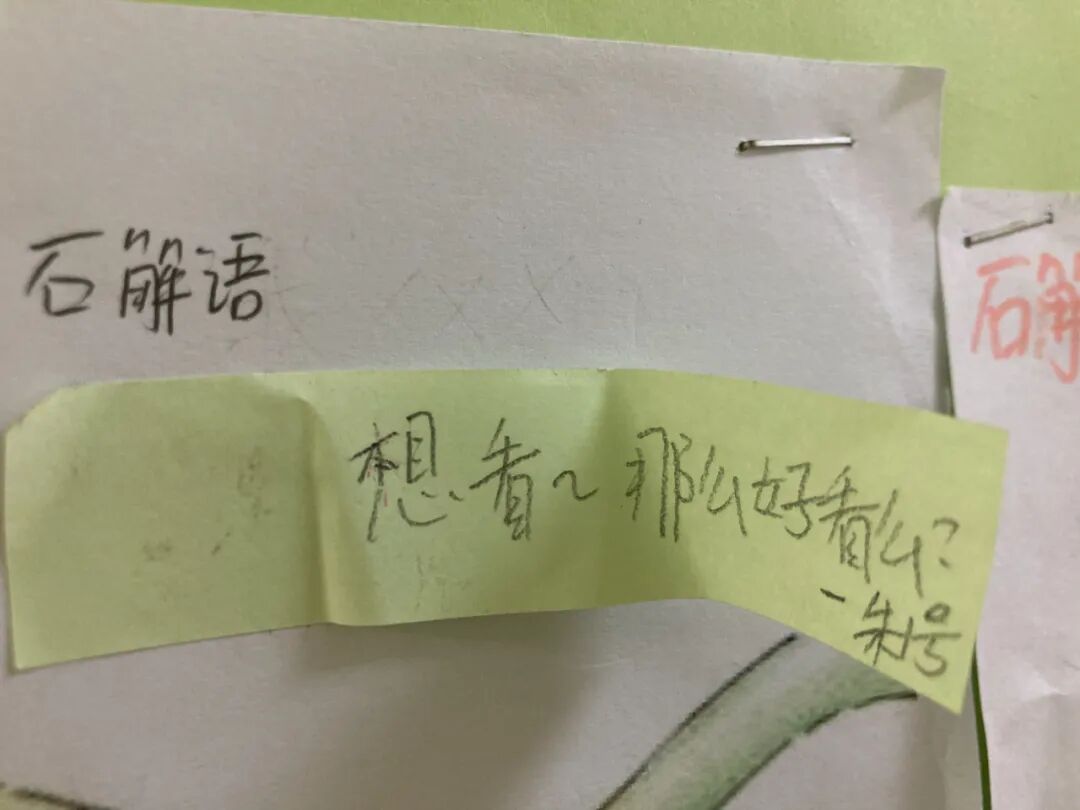 石解语
石解
想看~那么好看么?